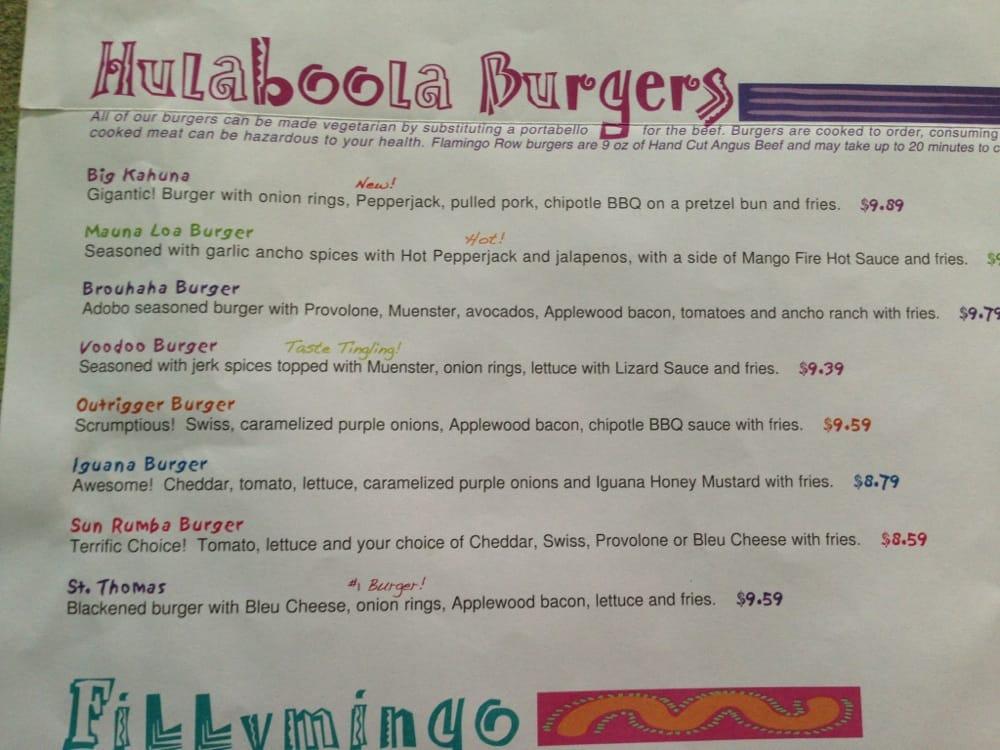 Hulaboola Burgers
All of our burgers can be made vegetarian by substituting a portabello for the beef. Burgers are cooked to order, consuming
cooked meat can be hazardous to your health. Flamingo Row burgers are 9 oz of Hand Cut Angus Beef and may take up to 20 minutes to
Big Kahuna
New!
Gigantic! Burger with onion rings, Pepperjack, pulled pork, chipotle BBQ on a pretzel bun and fries. $9.89
Mauna Loa Burger
Hot!
Seasoned with garlic ancho spices with Hot Pepperjack and jalapenos, with a side of Mango Fire Hot Sauce and fries.
Brouhaha Burger
Adobo seasoned burger with Provolone, Muenster, avocados, Applewood bacon, tomatoes and ancho ranch with fries. $9.79
Voodoo Burger Taste Tingling!
Seasoned with jerk spices topped with Muenster, onion rings, lettuce with Lizard Sauce and fries. $9.39
Outrigger Burger
Scrumptious! Swiss, caramelized purple onions, Applewood bacon, chipotle BBQ sauce with fries. $9.59
Iguana Burger
Awesome! Cheddar, tomato, lettuce, caramelized purple onions and Iguana Honey Mustard with fries. $8.79
Sun Rumba Burger
Terrific Choice! Tomato, lettuce and your choice of Cheddar, Swiss, Provolone or Bleu Cheese with fries. $8.59
St. Thomas #1 Burger!
Blackened burger with Bleu Cheese, onion rings, Applewood bacon, lettuce and fries. $9.59
Fillymingo